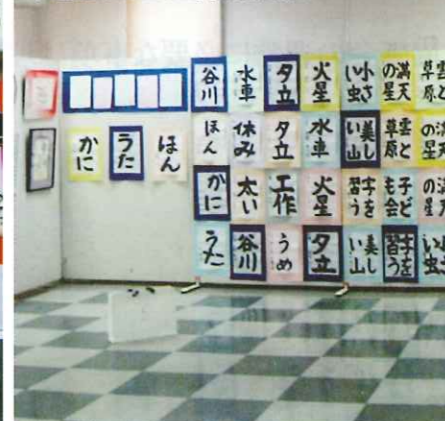 かに
うた
ほん
谷川
水車
夕立
火星
小さ
い虫
満天
の星
雲と
草原
ほん
休み
夕立
水車
美し
い山
雲と
草原
満天
の星
かに
太い
工作
火星
字を
習う
子ど
も会
満天
の星
うた
谷川
うめ
夕立
美し
い山
字を
習う
小さ
い虫